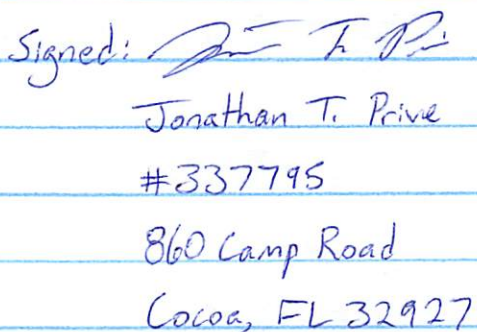 Signed:
Jonathan T. Privie
#337795
860 Camp Road
Cocoa, FL 32927